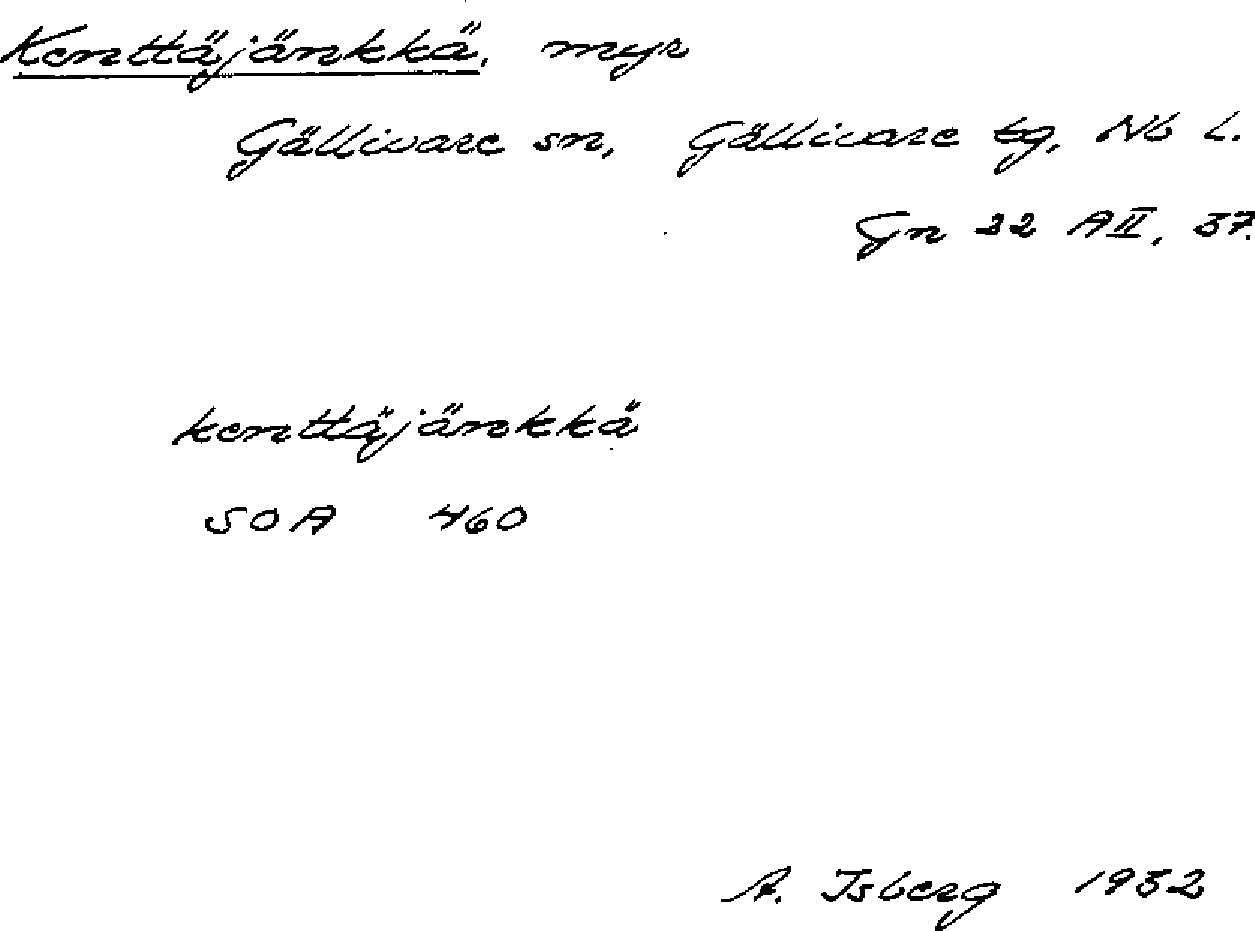 Kenttäjänkkä, myr
Gällivare sn, Gällivare tg, Nb L.
Gn 32 AII, 37.
kenttäjänkkä
SOA 460
A. Isberg 1932